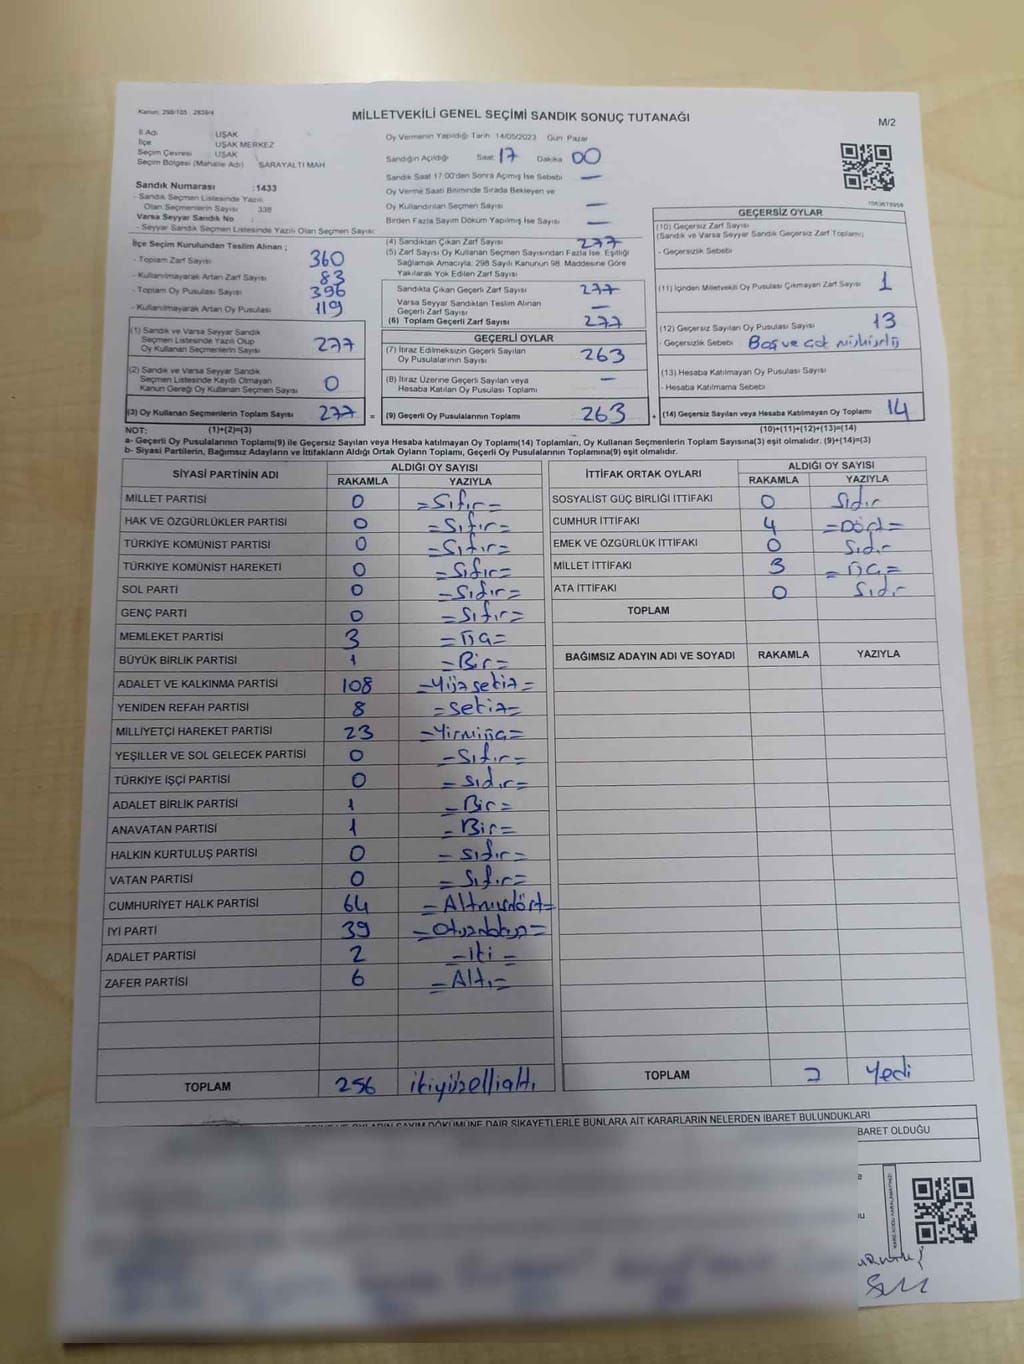 Kanun: 298/105 2839/4
MİLLETVEKİLİ GENEL SEÇİMİ SANDIK SONUÇ TUTANAĞI
M/2
İl Adı UŞAK
İlçe UŞAK MERKEZ
Seçim Çevresi UŞAK
Seçim Bölgesi (Mahalle Adı) SARAYALTI MAH
Sandık Numarası :1433
- Sandık Seçmen Listesinde Yazılı
Olan Seçmenlerin Sayısı 338
Varsa Seyyar Sandık No :
- Seyyar Sandık Seçmen Listesinde Yazılı Olan Seçmen Sayısı:
Oy Vermenin Yapıldığı Tarih 14/05/2023 Gün Pazar
Sandığın Açıldığı Saat 17 Dakika 00
Sandık Saat 17:00'den Sonra Açılmış İse Sebebi —
Oy Verme Saati Bitiminde Sırada Bekleyen ve
Oy Kullandırılan Seçmen Sayısı —
Birden Fazla Sayım Döküm Yapılmış İse Sayısı —
İlçe Seçim Kurulundan Teslim Alınan ;
- Toplam Zarf Sayısı 360
- Kullanılmayarak Artan Zarf Sayısı 83
- Toplam Oy Pusulası Sayısı 396
- Kullanılmayarak Artan Oy Pusulası 119
(1) Sandık ve Varsa Seyyar Sandık
Seçmen Listesinde Yazılı Olup
Oy Kullanan Seçmenlerin Sayısı 277
(2) Sandık ve Varsa Seyyar Sandık
Seçmen Listesinde Kayıtlı Olmayan
Kanun Gereği Oy Kullanan Seçmen Sayısı 0
(3) Oy Kullanan Seçmenlerin Toplam Sayısı 277 =
(4) Sandıktan Çıkan Zarf Sayısı 277
(5) Zarf Sayısı Oy Kullanan Seçmen Sayısından Fazla İse, Eşitliği
Sağlamak Amacıyla: 298 Sayılı Kanunun 98. Maddesine Göre
Yakılarak Yok Edilen Zarf Sayısı
Sandıkta Çıkan Geçerli Zarf Sayısı 277
Varsa Seyyar Sandıktan Teslim Alınan
Geçerli Zarf Sayısı —
(6) Toplam Geçerli Zarf Sayısı 277
GEÇERLİ OYLAR
(7) İtiraz Edilmeksizin Geçerli Sayılan
Oy Pusulalarının Sayısı 263
(8) İtiraz Üzerine Geçerli Sayılan veya
Hesaba Katılan Oy Pusulası Toplamı —
(9) Geçerli Oy Pusulalarının Toplamı 263 +
GEÇERSİZ OYLAR
(10) Geçersiz Zarf Sayısı
(Sandık ve Varsa Seyyar Sandık Geçersiz Zarf Toplamı)
- Geçersizlik Sebebi
(11) İçinden Milletvekili Oy Pusulası Çıkmayan Zarf Sayısı 1
(12) Geçersiz Sayılan Oy Pusulası Sayısı 13
- Geçersizlik Sebebi Boş ve Çok
(13) Hesaba Katılmayan Oy Pusulası Sayısı
- Hesaba Katılmama Sebebi
(14) Geçersiz Sayılan veya Hesaba Katılmayan Oy Toplamı 14
NOT: (1)+(2)=(3) (10)+(11)+(12)+(13)=(14)
a- Geçerli Oy Pusulalarının Toplamı(9) ile Geçersiz Sayılan veya Hesaba katılmayan Oy Toplamı(14) Toplamları, Oy Kullanan Seçmenlerin Toplam Sayısına(3) eşit olmalıdır. (9)+(14)=(3)
b- Siyasi Partilerin, Bağımsız Adayların ve İttifakların Aldığı Ortak Oyların Toplamı, Geçerli Oy Pusulalarının Toplamına(9) eşit olmalıdır.
SİYASİ PARTİNİN ADI ALDIĞI OY SAYISI
RAKAMLA YAZIYLA
MİLLET PARTİSİ 0 =Sıfır=
HAK VE ÖZGÜRLÜKLER PARTİSİ 0 =Sıfır=
TÜRKİYE KOMÜNİST PARTİSİ 0 =Sıfır=
TÜRKİYE KOMÜNİST HAREKETİ 0 =Sıfır=
SOL PARTİ 0 =Sıfır=
GENÇ PARTİ 0 =Sıfır=
MEMLEKET PARTİSİ 3 =Üç=
BÜYÜK BİRLİK PARTİSİ 1 =Bir=
ADALET VE KALKINMA PARTİSİ 108 =Yüzsekiz=
YENİDEN REFAH PARTİSİ 8 =Sekiz=
MİLLİYETÇİ HAREKET PARTİSİ 23 =Yirmiüç=
YEŞİLLER VE SOL GELECEK PARTİSİ 0 =Sıfır=
TÜRKİYE İŞÇİ PARTİSİ 0 =Sıfır=
ADALET BİRLİK PARTİSİ 1 =Bir=
ANAVATAN PARTİSİ 1 =Bir=
HALKIN KURTULUŞ PARTİSİ 0 =Sıfır=
VATAN PARTİSİ 0 =Sıfır=
CUMHURİYET HALK PARTİSİ 64 =Altmışdört=
İYİ PARTİ 39 =Otuzdokuz=
ADALET PARTİSİ 2 =iki=
ZAFER PARTİSİ 6 =Altı=
TOPLAM 256 ikiyüzellialtı
İTTİFAK ORTAK OYLARI ALDIĞI OY SAYISI
RAKAMLA YAZIYLA
SOSYALİST GÜÇ BİRLİĞİ İTTİFAKI 0 Sıfır
CUMHUR İTTİFAKI 4 =Dört=
EMEK VE ÖZGÜRLÜK İTTİFAKI 0 Sıfır
MİLLET İTTİFAKI 3 =Üç=
ATA İTTİFAKI 0 Sıfır
TOPLAM
BAĞIMSIZ ADAYIN ADI VE SOYADI RAKAMLA YAZIYLA
TOPLAM 7 Yedi
OYLARIN SAYIM DÖKÜMÜNE DAİR ŞİKAYETLERLE BUNLARA AİT KARARLARIN NELERDEN İBARET BULUNDUKLARI
BARET OLDUĞU